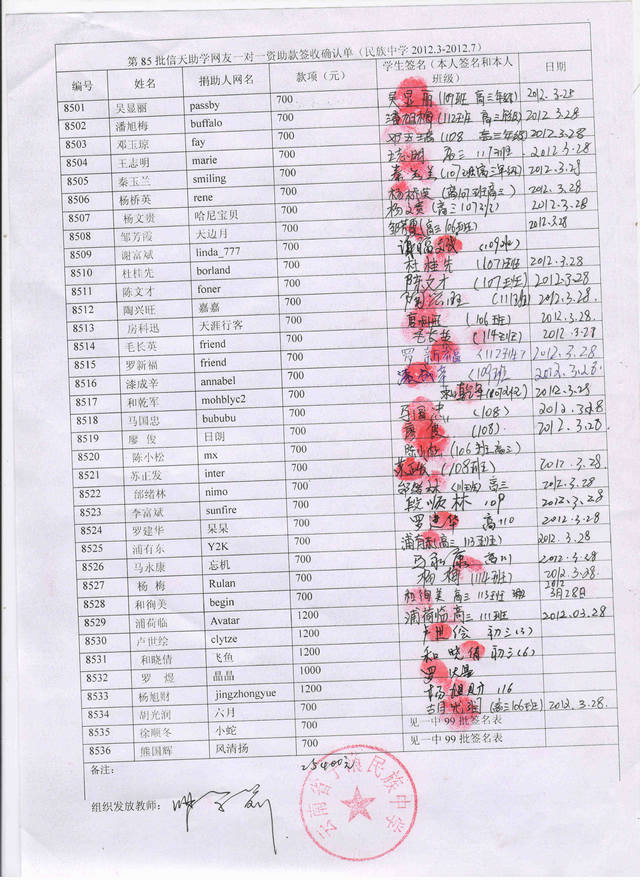 第 85 批信天助学网友一对一资助款签收确认单（民族中学 2012.3-2012.7）
编号 姓名 捐助人网名 款项（元） 学生签名（本人签名和本人班级） 日期
8501 吴显丽 passby 700 吴显丽(109班 高三年级) 2012.3.25
8502 潘旭梅 buffalo 700 潘旭梅(112班 高三年级) 2012.3.28
8503 邓玉琼 fay 700 邓玉琼(108 高三年级) 2012.3.28
8504 王志明 marie 700 王志明 高三 117班 2012.3.28
8505 秦玉兰 smiling 700 秦玉兰(107班高三年级) 2012.3.28
8506 杨桥英 rene 700 杨桥英(高107班高三) 2012.3.28
8507 杨文贵 哈尼宝贝 700 杨文贵(高三107班) 2012.3.28
8508 邹芳霞 天边月 700 邹芳霞(高三106班) 2012.3.28
8509 谢富斌 linda_777 700 (109班)
8510 杜桂先 borland 700 杜桂先 (107班) 2012.3.28
8511 陈文才 foner 700 陈文才 (107班) 2012.3.28
8512 陶兴旺 嘉嘉 700 陶兴旺 (111班) 2012.3.28.
8513 房科迅 天涯行客 700 (106班) 2012.3.28.
8514 毛长英 friend 700 毛长英 (114班) 2012.3.28
8515 罗新福 friend 700 罗新福 (112班) 2012.3.28
8516 漆成辛 annabel 700 漆成辛 (109班 2012.3.28.
8517 和乾军 mohblyc2 700 2012.3.28
8518 马国忠 bububu 700 马国忠 (108) 2012.3.28
8519 廖 俊 日朗 700 廖俊 (108). 2012.3.28.
8520 陈小松 mx 700 陈小松 (106班高三)
8521 苏正发 inter 700 苏正发 (108班) 2012.3.28.
8522 邰绪林 nimo 700 邰绪林 高三 2012.3.28.
8523 李富斌 sunfire 700 段顺林 109 2012.3.28
8524 罗建华 杲杲 700 罗建华 高110 2012.3.28
8525 浦有东 Y2K 700 浦有东(高三 113班) 2012.3.28.
8526 马永康 忘机 700 马永康 高111 2012.3.28
8527 杨 梅 Rulan 700 杨梅 (114班) 2012.3.28.
8528 和徇美 begin 700 和徇美 高三 113班 2012 3月28日
8529 浦荷临 Avatar 1200 浦荷临 高三 111班 2012.03.28
8530 卢世绘 clytze 1200 卢世绘 初三(3)
8531 和晓倩 飞鱼 1200 和晓倩 初三(6)
8532 罗 煜 晶晶 1000 罗
8533 杨旭财 jingzhongyue 1200 杨旭财 116
8534 胡光润 六月 700 胡光润(高三106班) 2012.3.28
8535 徐顺冬 小蛇 700 见一中 99 批签名表
8536 熊国辉 风清扬 700 见一中 99 批签名表
备注： 25400元
组织发放教师：
云南省宁蒗民族中学